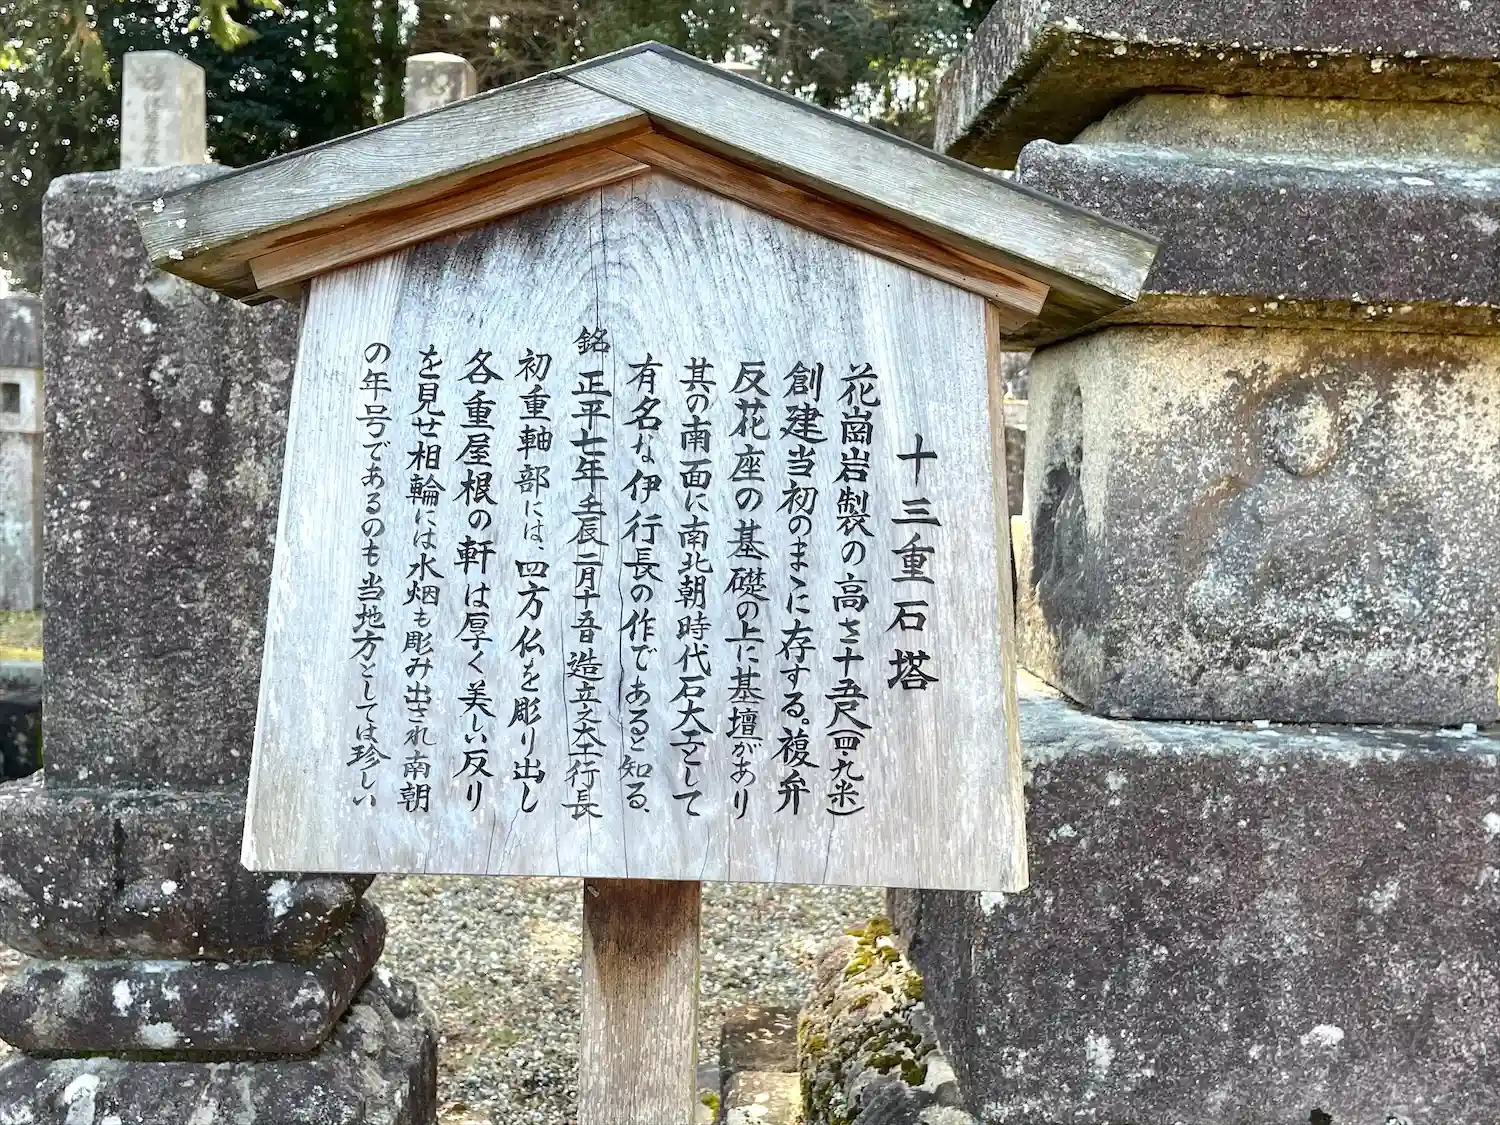 十三重石塔
花崗岩製の高さ十五尺(四・九米)
創建当初のまゝに存する。複弁
反花座の基礎の上に基壇があり
其の南面に南北朝時代石大工として
有名な伊行長の作であると知る、
銘 正平七年壬辰二月十五日造立之大工行長
初重軸部には、四方仏を彫り出し
各重屋根の軒は厚く美しい反り
を見せ相輪には水烟も彫み出され南朝
の年号であるのも当地方としては珍しい